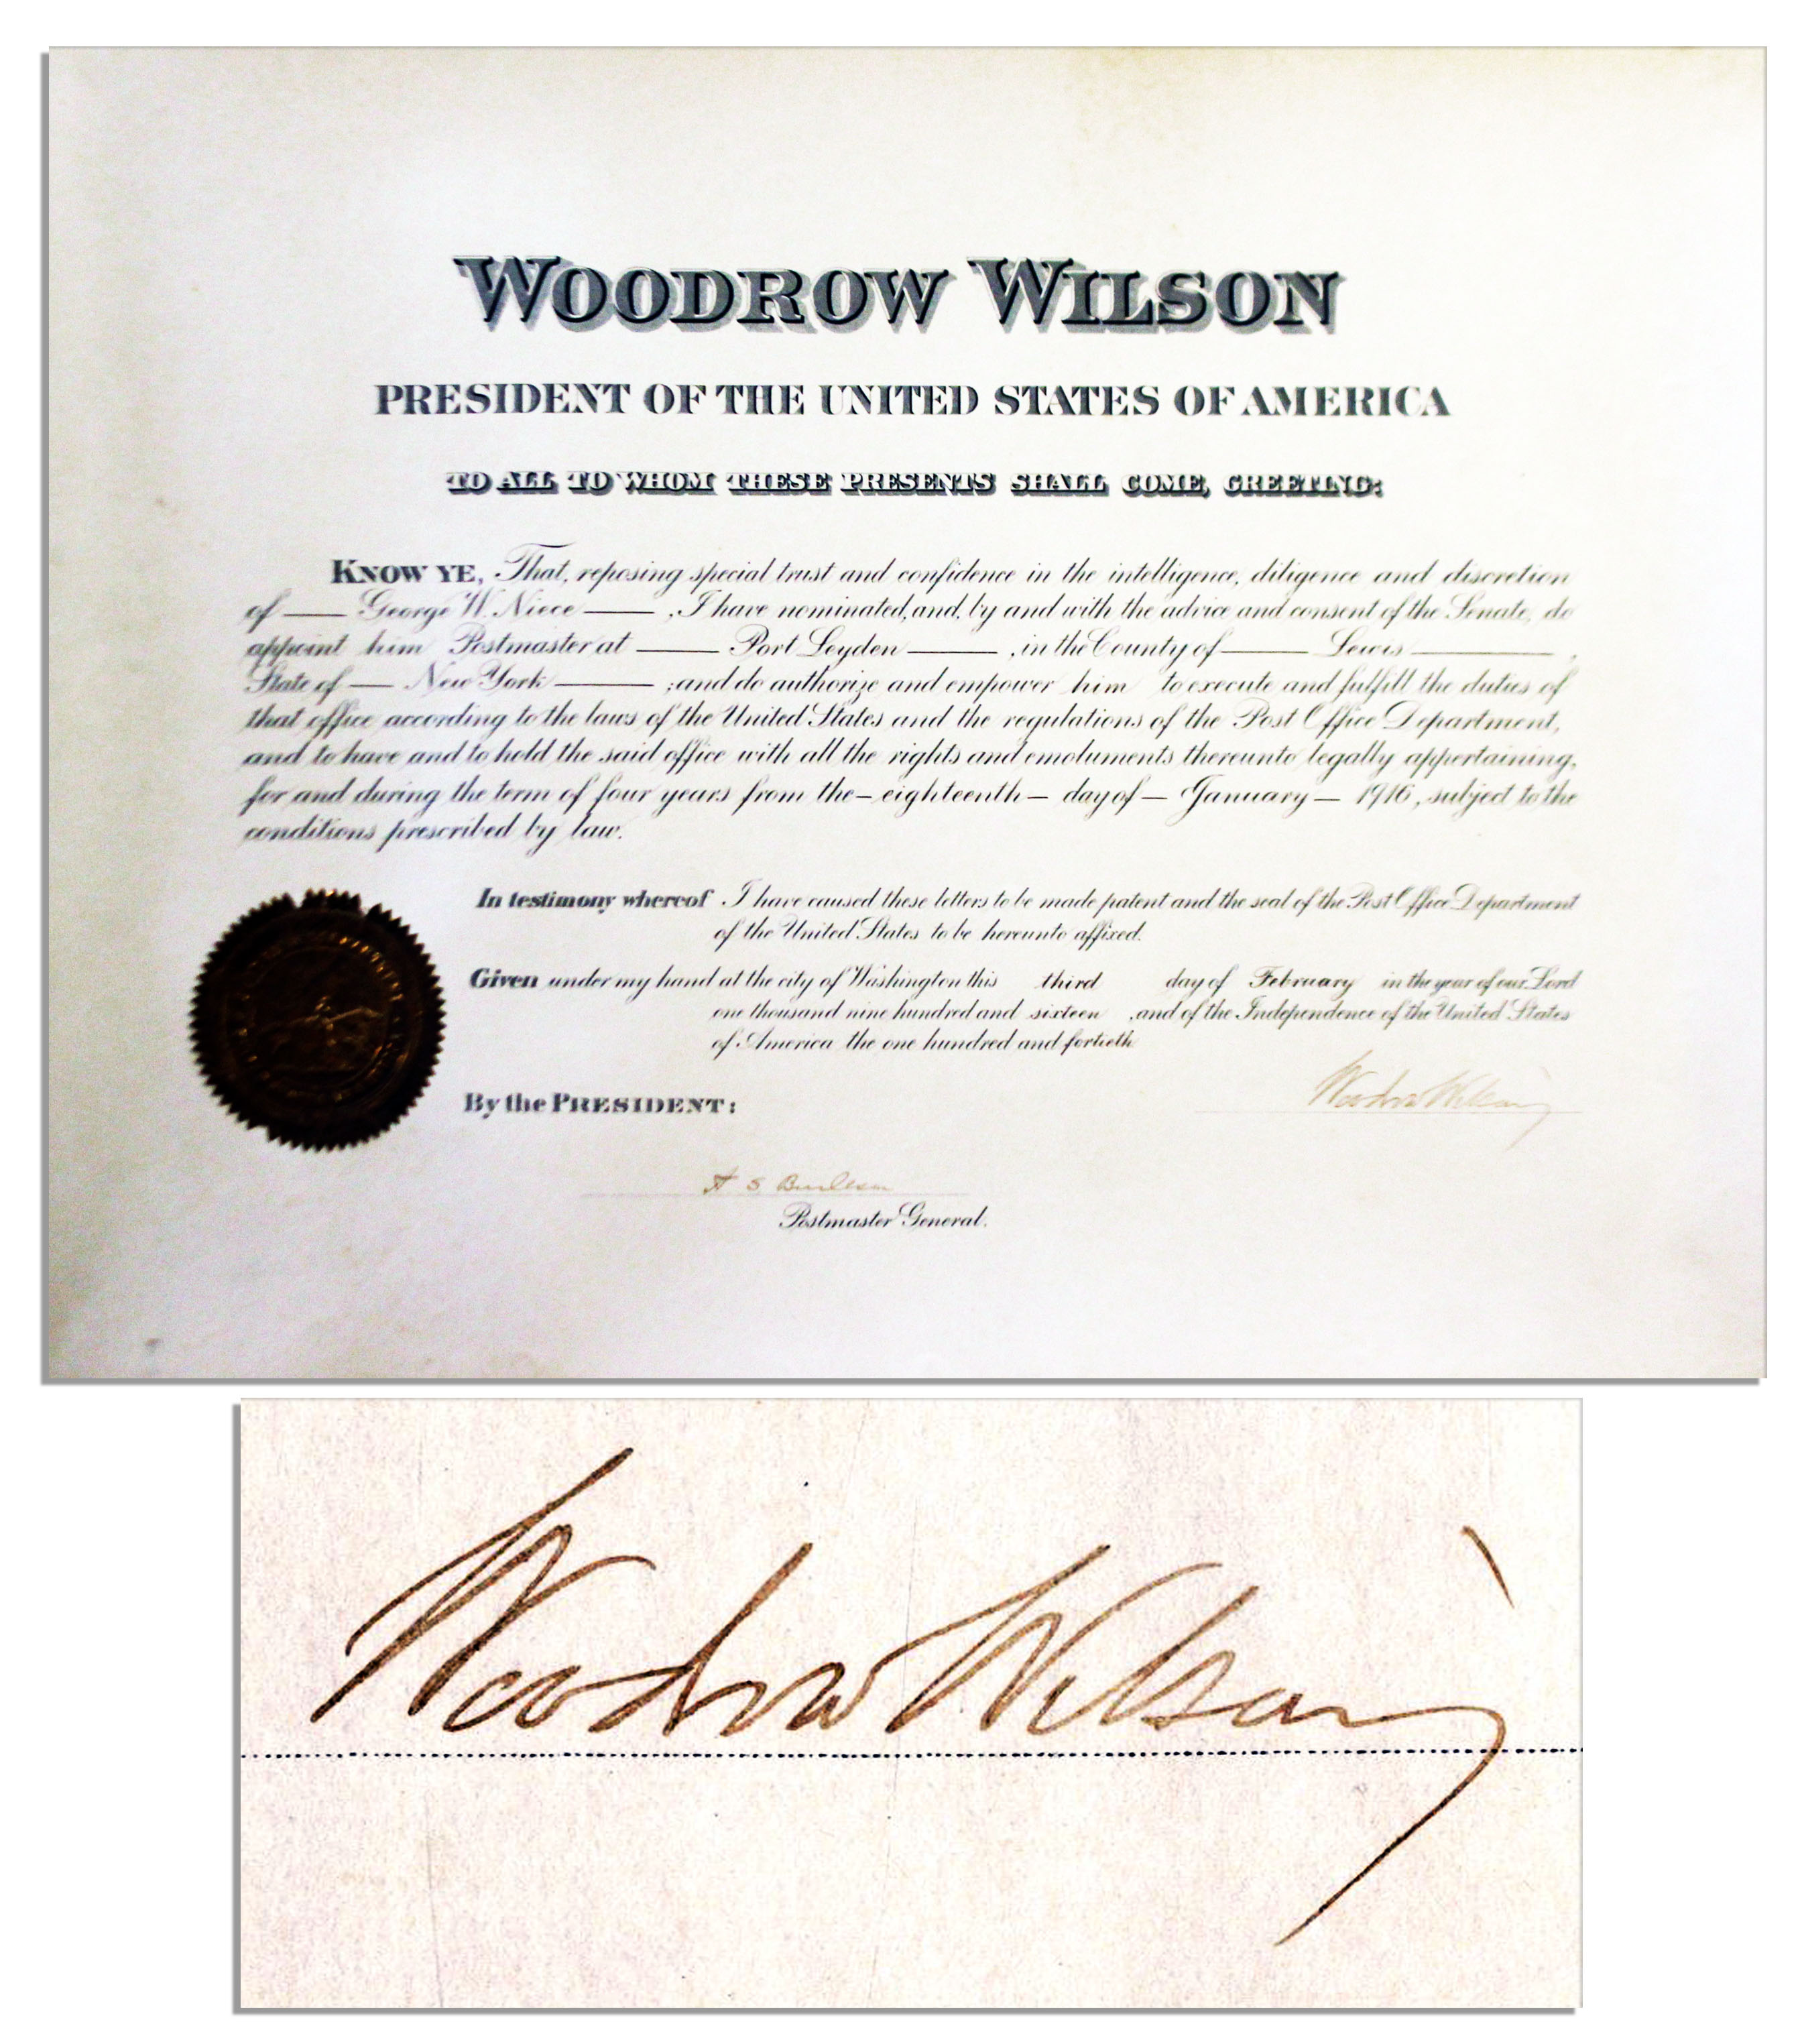 WOODROW WILSON
PRESIDENT OF THE UNITED STATES OF AMERICA
TO ALL TO WHOM THESE PRESENTS SHALL COME, GREETING:
KNOW YE, That, reposing special trust and confidence in the intelligence, diligence and discretion
of — George W. Niece — , I have nominated, and, by and with the advice and consent of the Senate, do
appoint him Postmaster at — Port Leyden — , in the County of — Lewis — ,
State of — New York — ; and do authorize and empower him to execute and fulfill the duties of
that office according to the laws of the United States and the regulations of the Post Office Department,
and to have and to hold the said office with all the rights and emoluments thereunto legally appertaining,
for and during the term of four years from the — eighteenth — day of — January — 1916, subject to the
conditions prescribed by law.
In testimony whereof I have caused these letters to be made patent and the seal of the Post Office Department
of the United States to be hereunto affixed.
Given under my hand at the city of Washington this third day of February in the year of our Lord
one thousand nine hundred and sixteen , and of the Independence of the United States
of America the one hundred and fortieth
Woodrow Wilson
By the PRESIDENT:
A S Burleson
Postmaster General.
Woodrow Wilson